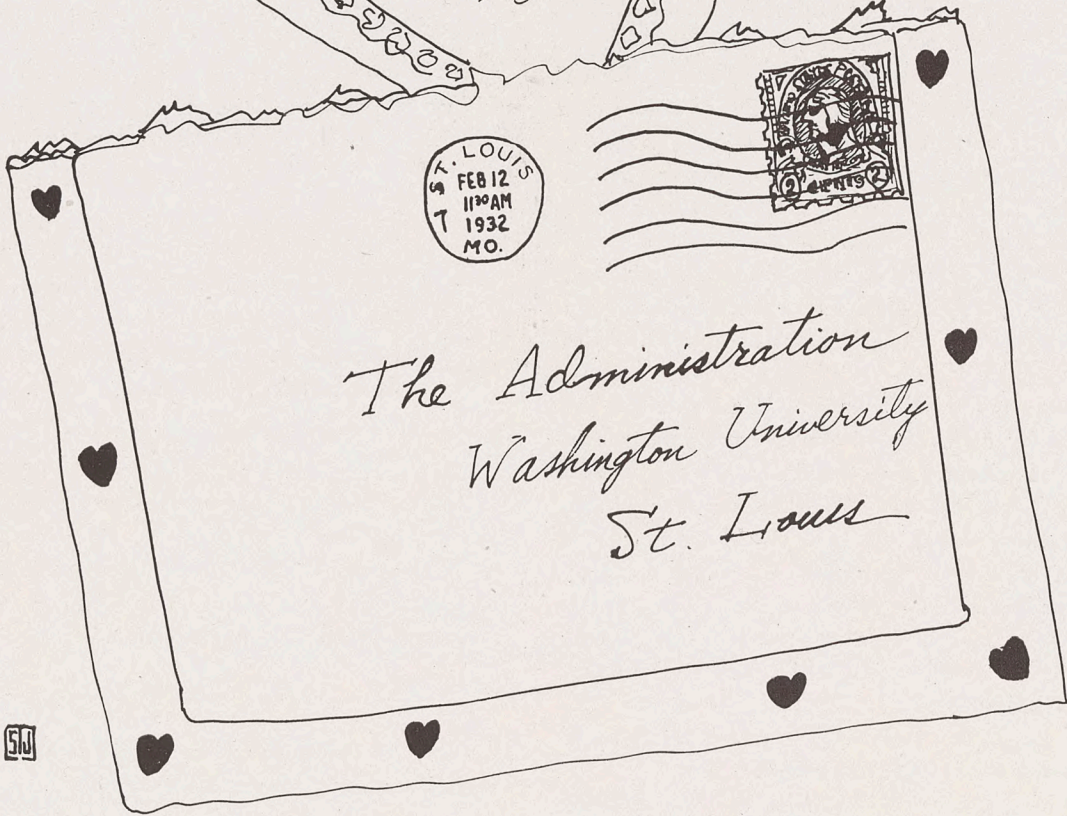 ST. LOUIS
7
FEB 12
11³⁰ AM
1932
MO.
2 CENTS 2
The Administration
Washington University
St. Louis
STJ